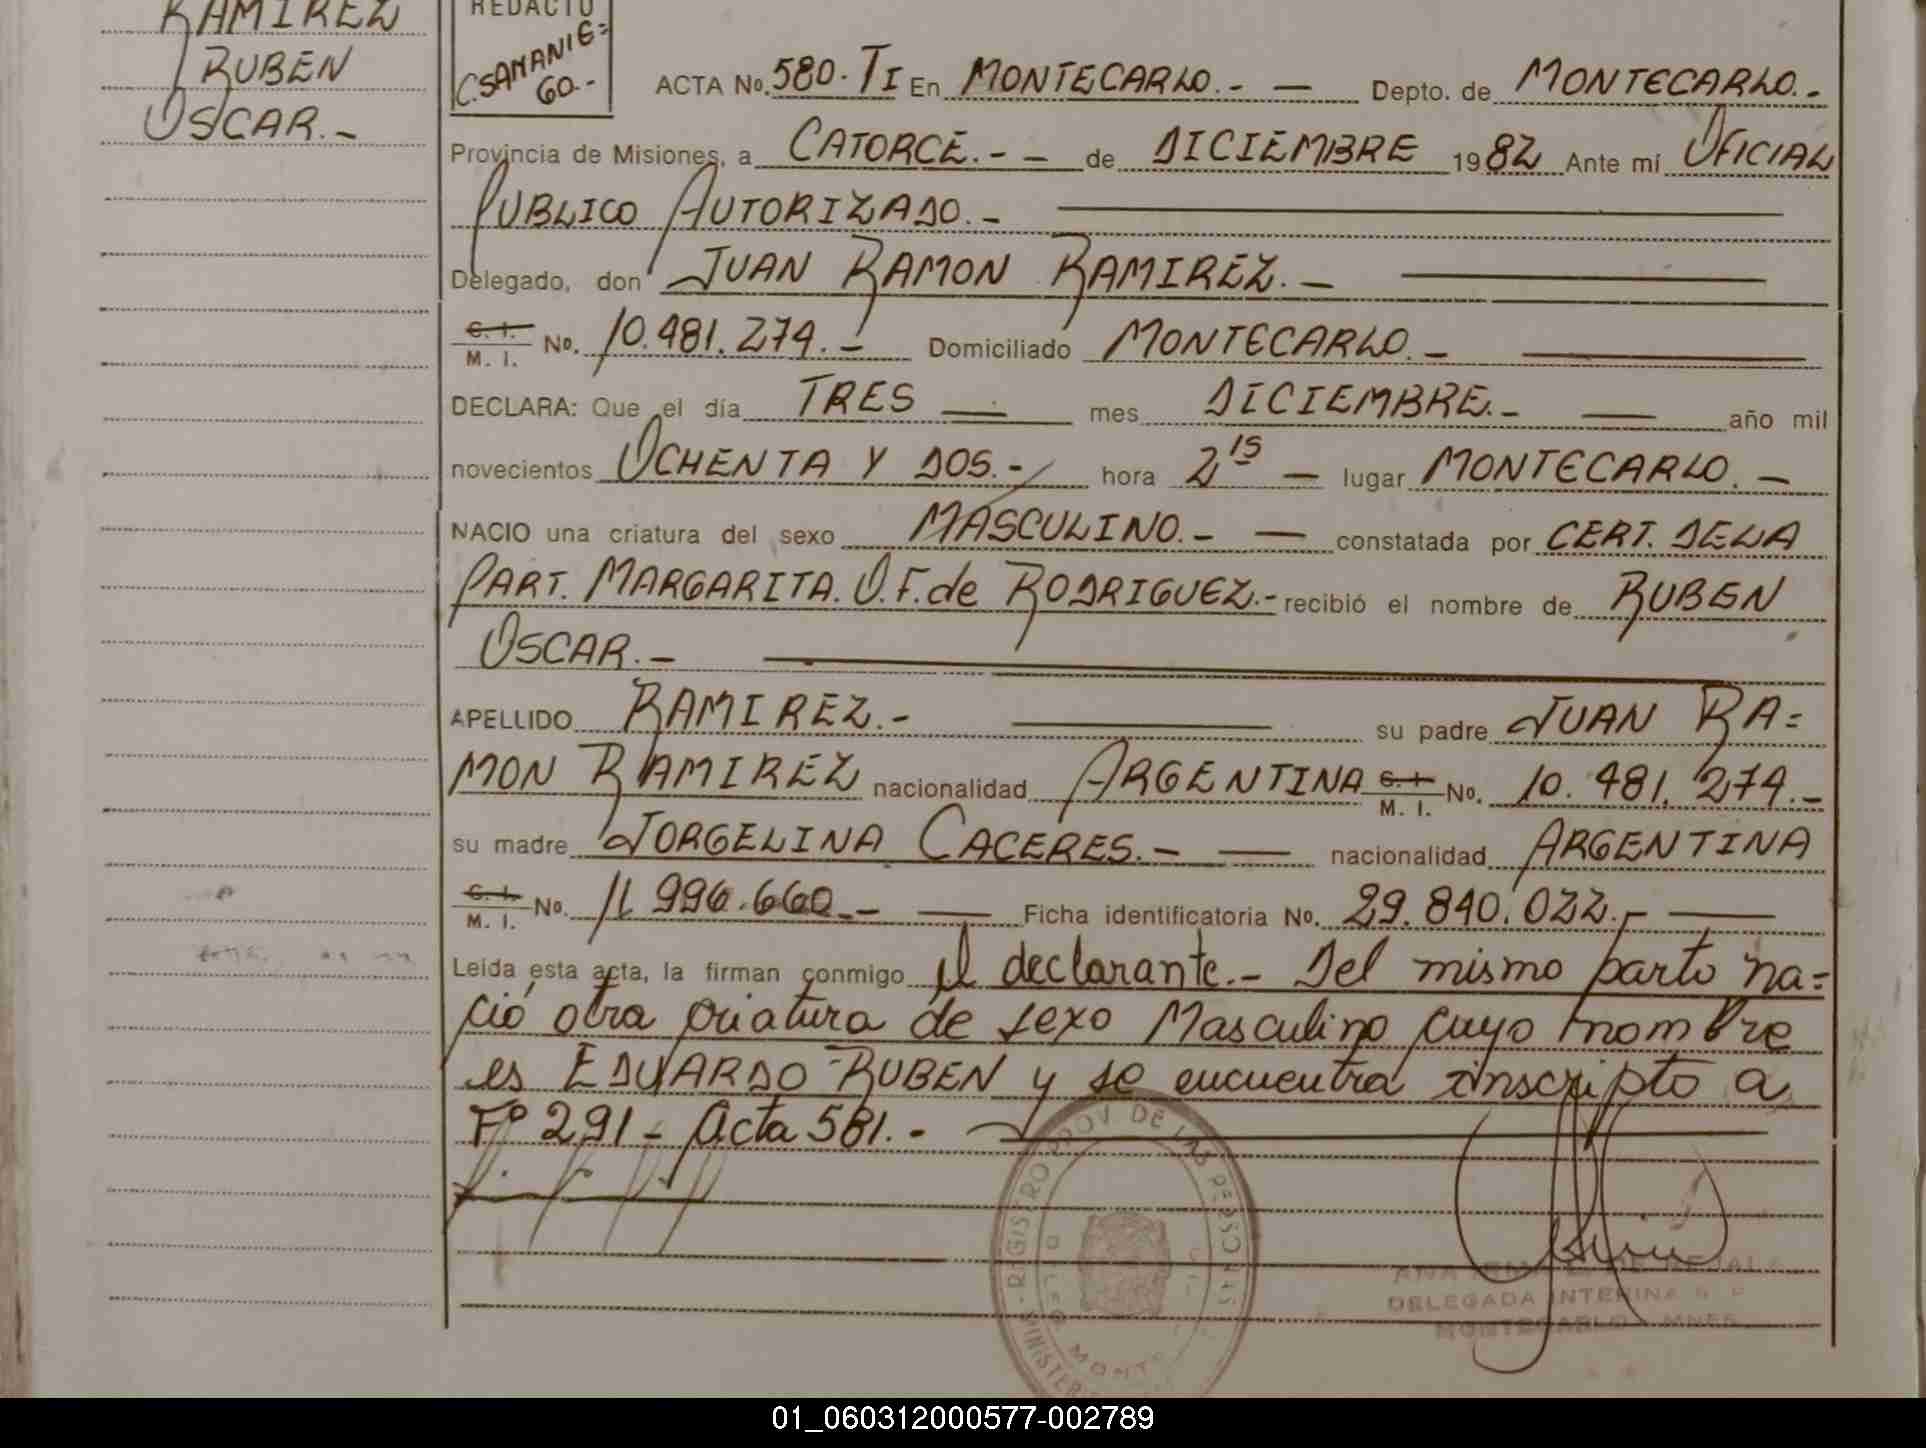 RAMIREZ
RUBEN
OSCAR.-
REDACTO
C.SAMANIE=
GO.-
ACTA No. 580. TI En MONTECARLO.- — Depto. de MONTECARLO.-
Provincia de Misiones, a CATORCE.- - de DICIEMBRE 1982 Ante mí OFICIAL
PUBLICO AUTORIZADO.-
Delegado, don JUAN RAMON RAMIREZ.-
C. I.
M. I. No. 10.481.274.- Domiciliado MONTECARLO.-
DECLARA: Que el día TRES — mes DICIEMBRE.- — año mil
novecientos OCHENTA Y DOS.- hora 2 15 — lugar MONTECARLO.-
NACIO una criatura del sexo MASCULINO.- — constatada por CERT. DE LA
PART. MARGARITA. O.F. de RODRIGUEZ.- recibió el nombre de RUBEN
OSCAR.-
APELLIDO RAMIREZ.- su padre JUAN RA=
MON RAMIREZ nacionalidad ARGENTINA C. I. M. I. No. 10.481.274.-
su madre JORGELINA CACERES.- — nacionalidad ARGENTINA
C. I.
M. I. No. 11.996.660.- — Ficha identificatoria No. 29.840.022.-
Leída esta acta, la firman conmigo el declarante.- Del mismo parto na=
ció otra criatura de sexo Masculino cuyo nombre
es EDUARDO RUBEN y se encuentra inscripto a
Fº 291 - Acta 581.-
REGISTRO PROV. DE LAS PERSONAS
DELEGADA INTERINA
MONTECARLO - MNES
01_060312000577-002789